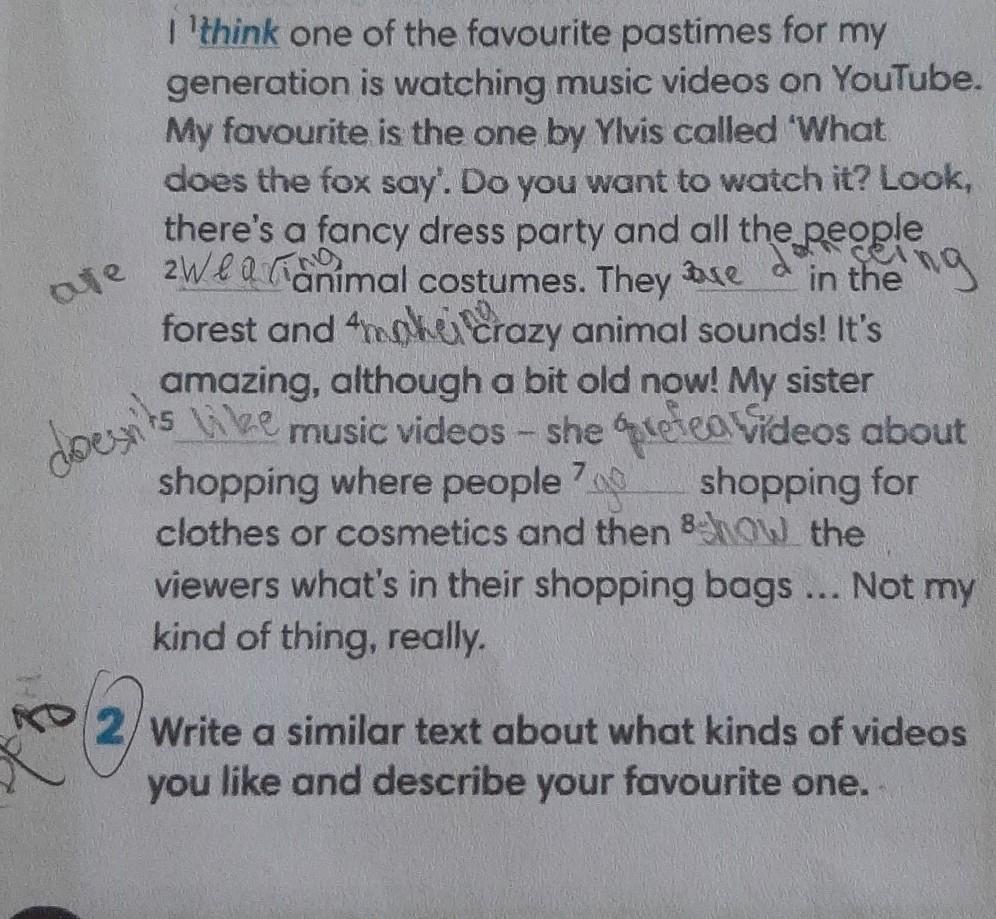 I ¹think one of the favourite pastimes for my
generation is watching music videos on YouTube.
My favourite is the one by Ylvis called 'What
does the fox say'. Do you want to watch it? Look,
there's a fancy dress party and all the people
are ²wearing animal costumes. They ³are danceing in the
forest and ⁴makeing crazy animal sounds! It's
amazing, although a bit old now! My sister
doesn't ⁵like music videos – she ⁶prefears videos about
shopping where people ⁷go shopping for
clothes or cosmetics and then ⁸show the
viewers what's in their shopping bags ... Not my
kind of thing, really.
2 Write a similar text about what kinds of videos
you like and describe your favourite one.